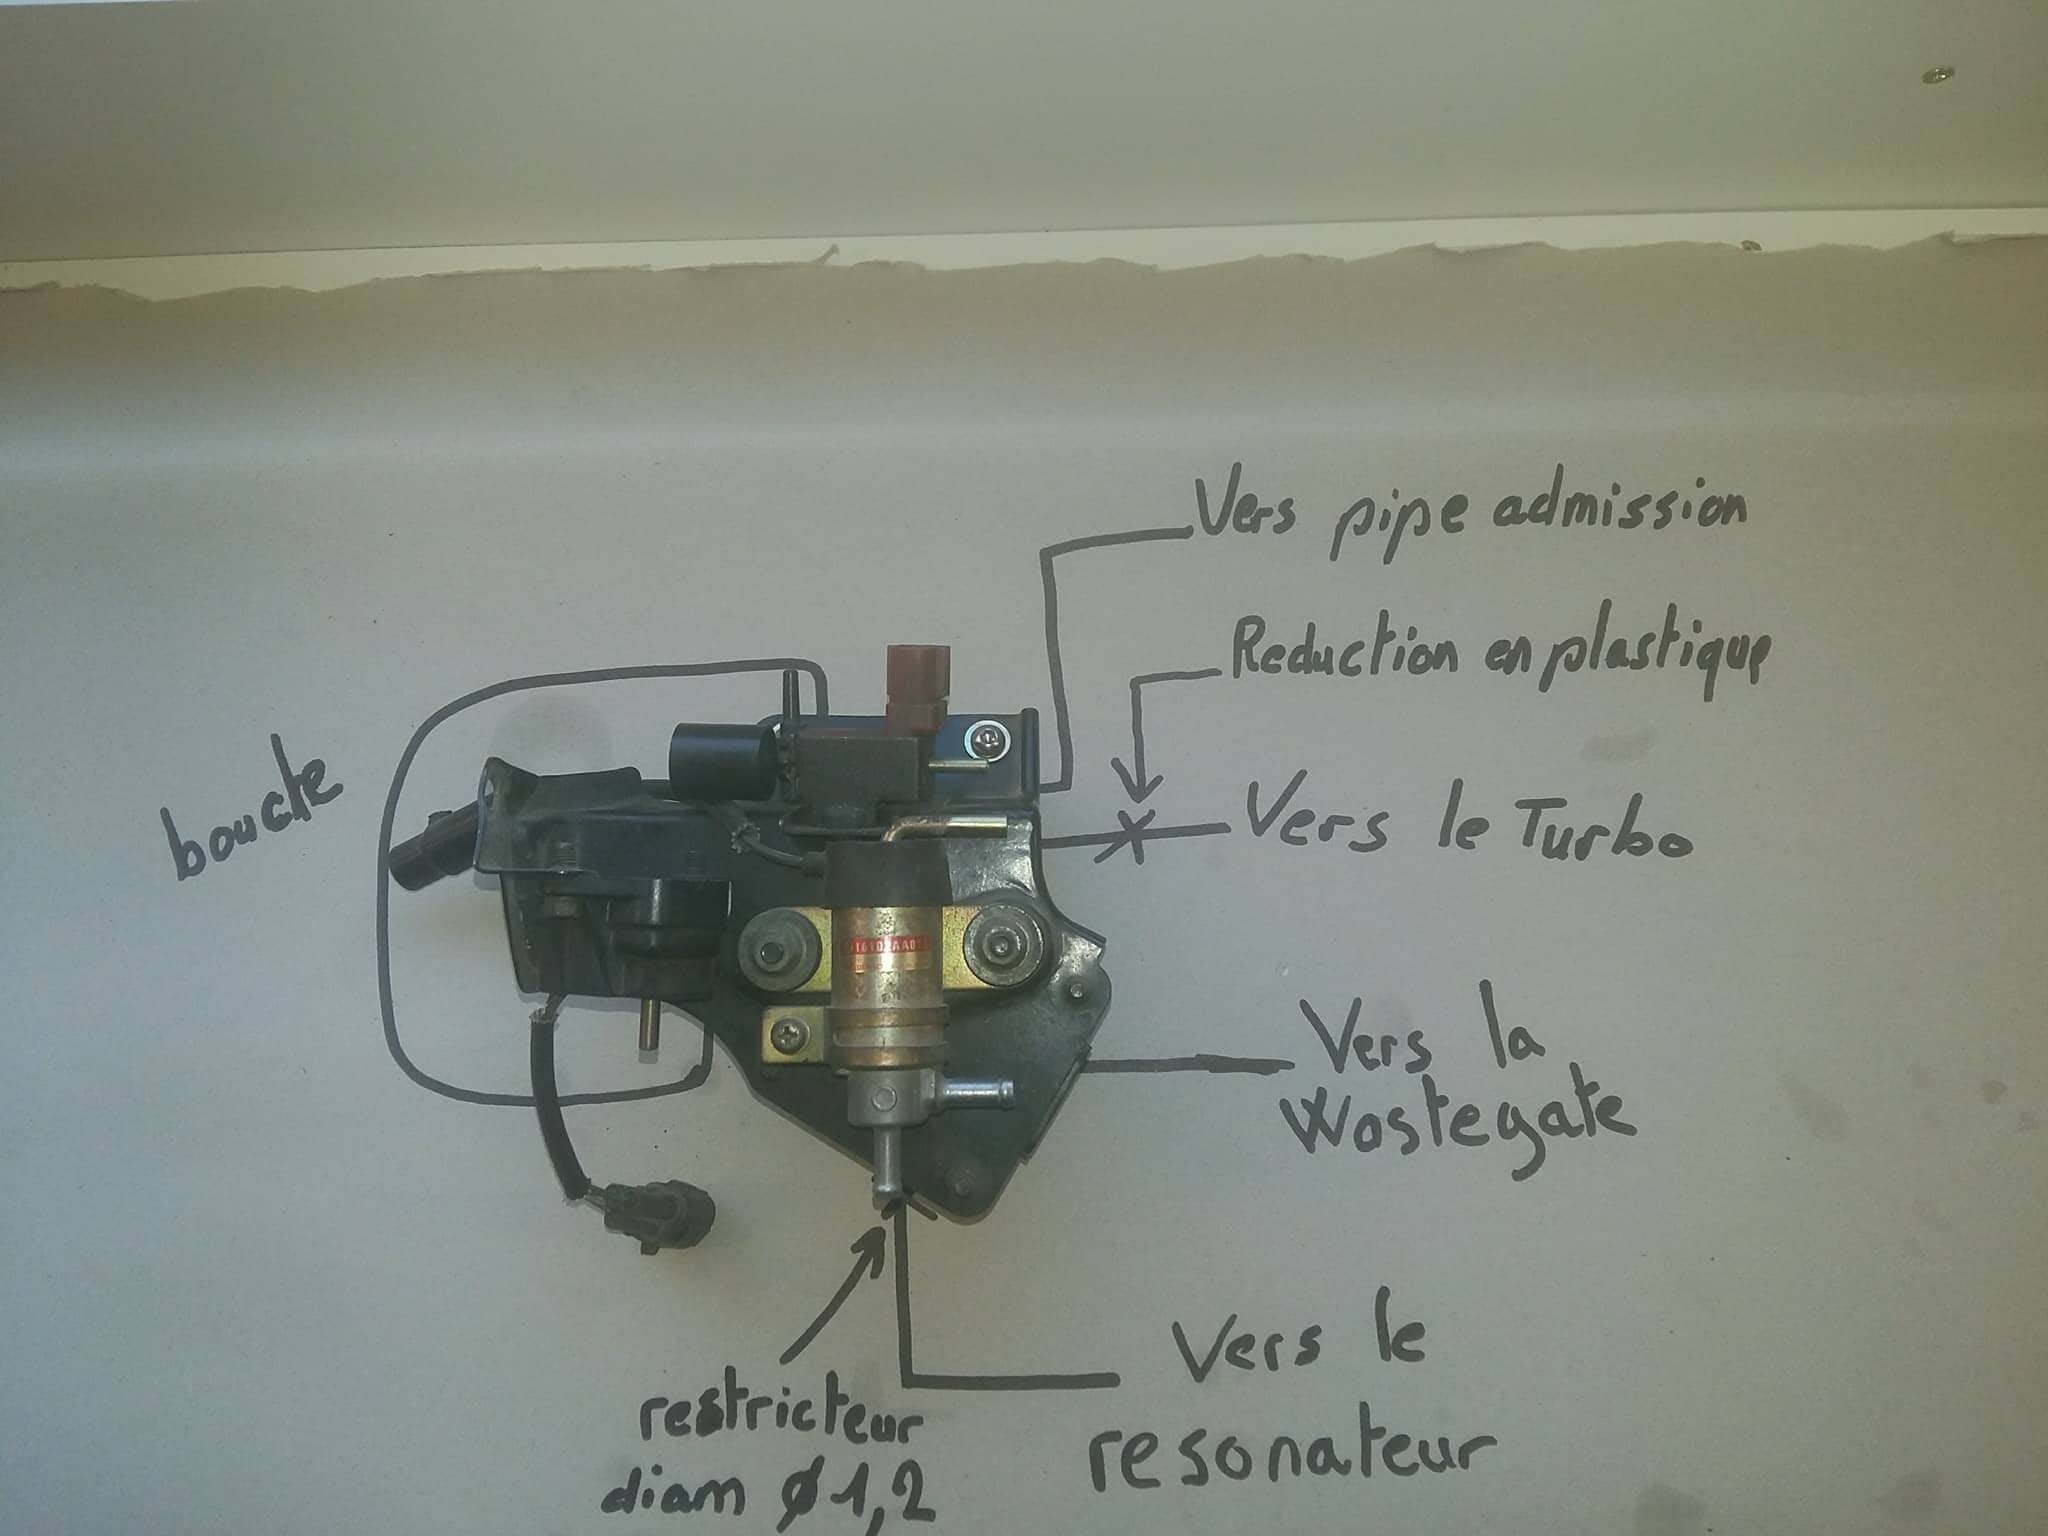 Vers pipe admission
Reduction en plastique
bouche
Vers le Turbo
Vers la
Wastegate
Vers le
resonateur
restricteur
diam ø 1,2